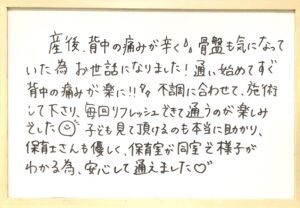 産後、背中の痛みが辛く、骨盤も気になって
いた為 お世話になりました! 通い始めてすぐ
背中の痛みが楽に!! 不調に合わせて、施術
して下さり、毎回リフレッシュできて通うのが楽しみ
でした 子ども見て頂けるのも本当に助かり、
保育士さんも優しく、保育室が同室で様子が
わかる為、安心して通えました♡